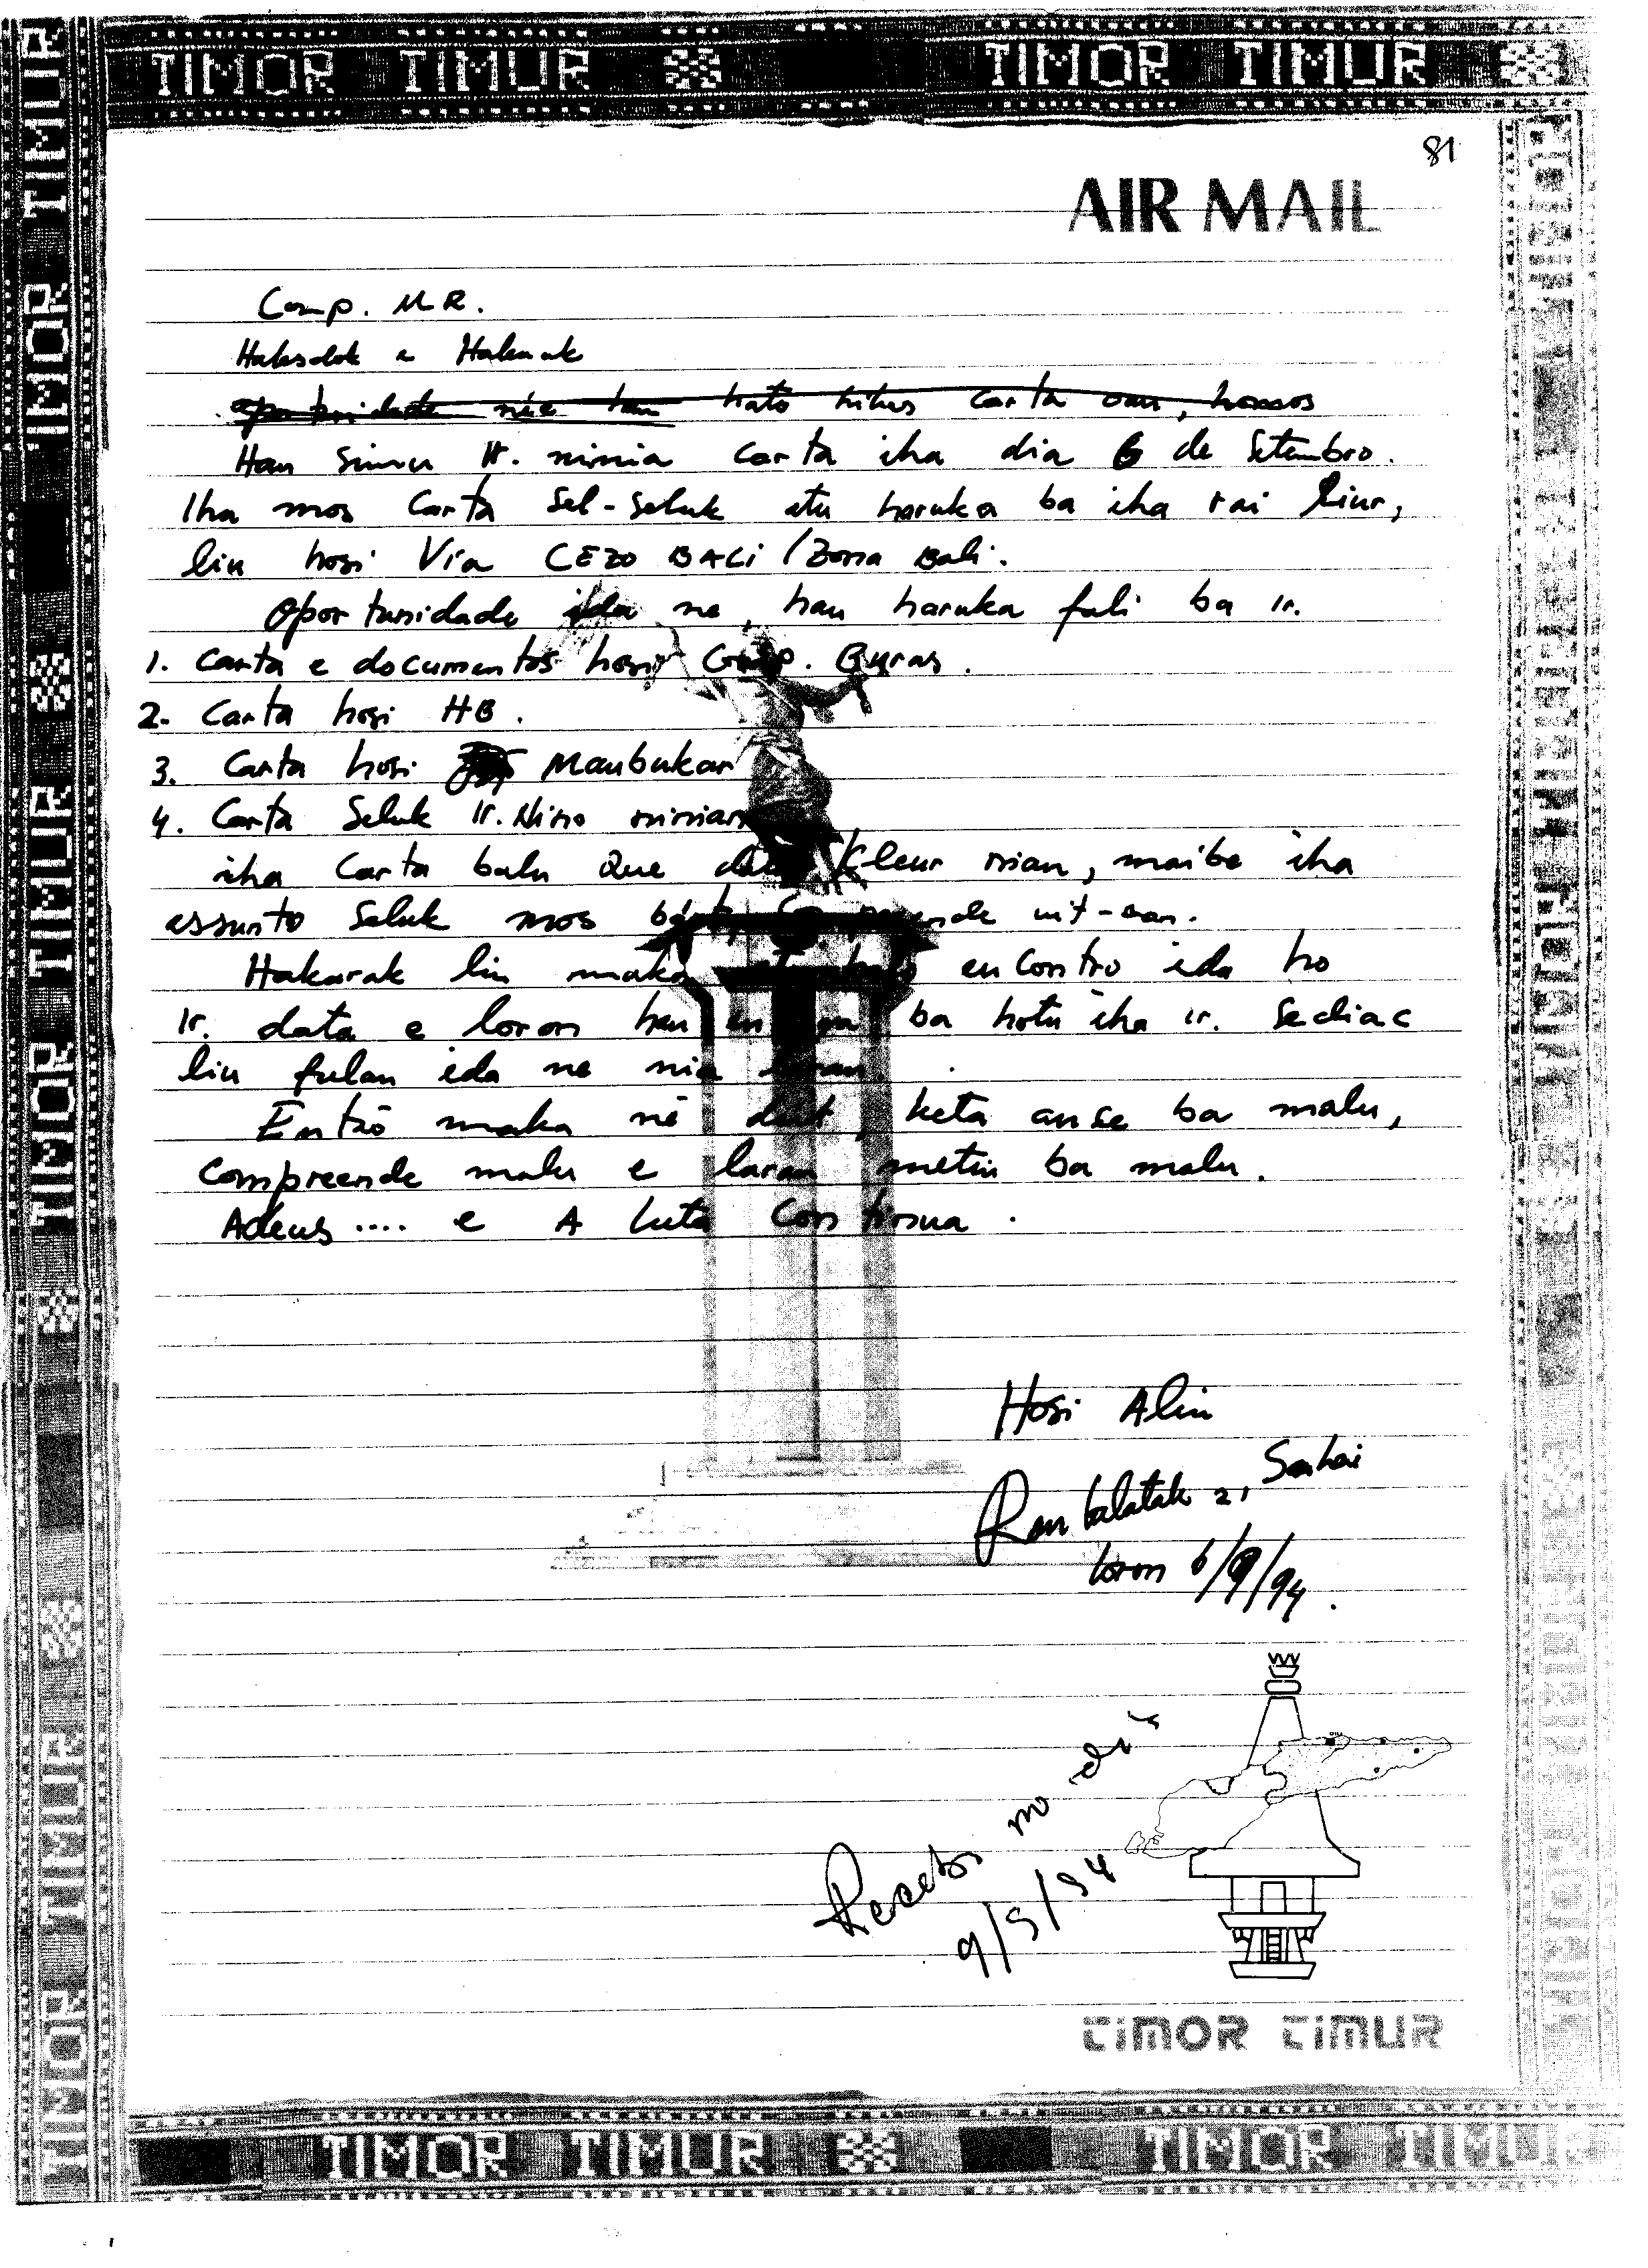 TIMOR TIMUR TIMOR TIMUR
81
AIR MAIL
Comp. M R.
Haksolok e Hakuak
oportunidade née hau hato hikus carta oan, hossos
Hau simu Ir. ninia carta iha dia 6 de Setembro.
Iha mos carta sel-seluk atu haruka ba iha rai liur,
liu hosi Via CEZO BALI / Zona Bali.
Oportunidade ida ne, hau haruka fali ba Ir.
1. Carta e documentos hosi Comp. Buras.
2. Carta hosi HB.
3. Carta hosi Maubukar
4. Carta Seluk Ir. Nino ninian
iha carta balu que data kleur nian, maibe iha
assunto seluk mos uit-oan.
Hakarak liu maka encontro ida ho
Ir. data e loron hau ba hotu iha Ir. Sediac
liu fulan ida ne nia laran.
Entáo maka né deit, keta anse ba malu,
compreende malu e laran metin ba malu.
Adeus .... e A Luta Continua.
Hosi Alin
loron 6/9/94.
no dia
9/9/94
TIMOR TIMUR
TIMOR TIMUR TIMOR TIMUR
TIMOR TIMUR TIMOR TIMUR TIMOR TIMUR TIMOR TIMUR